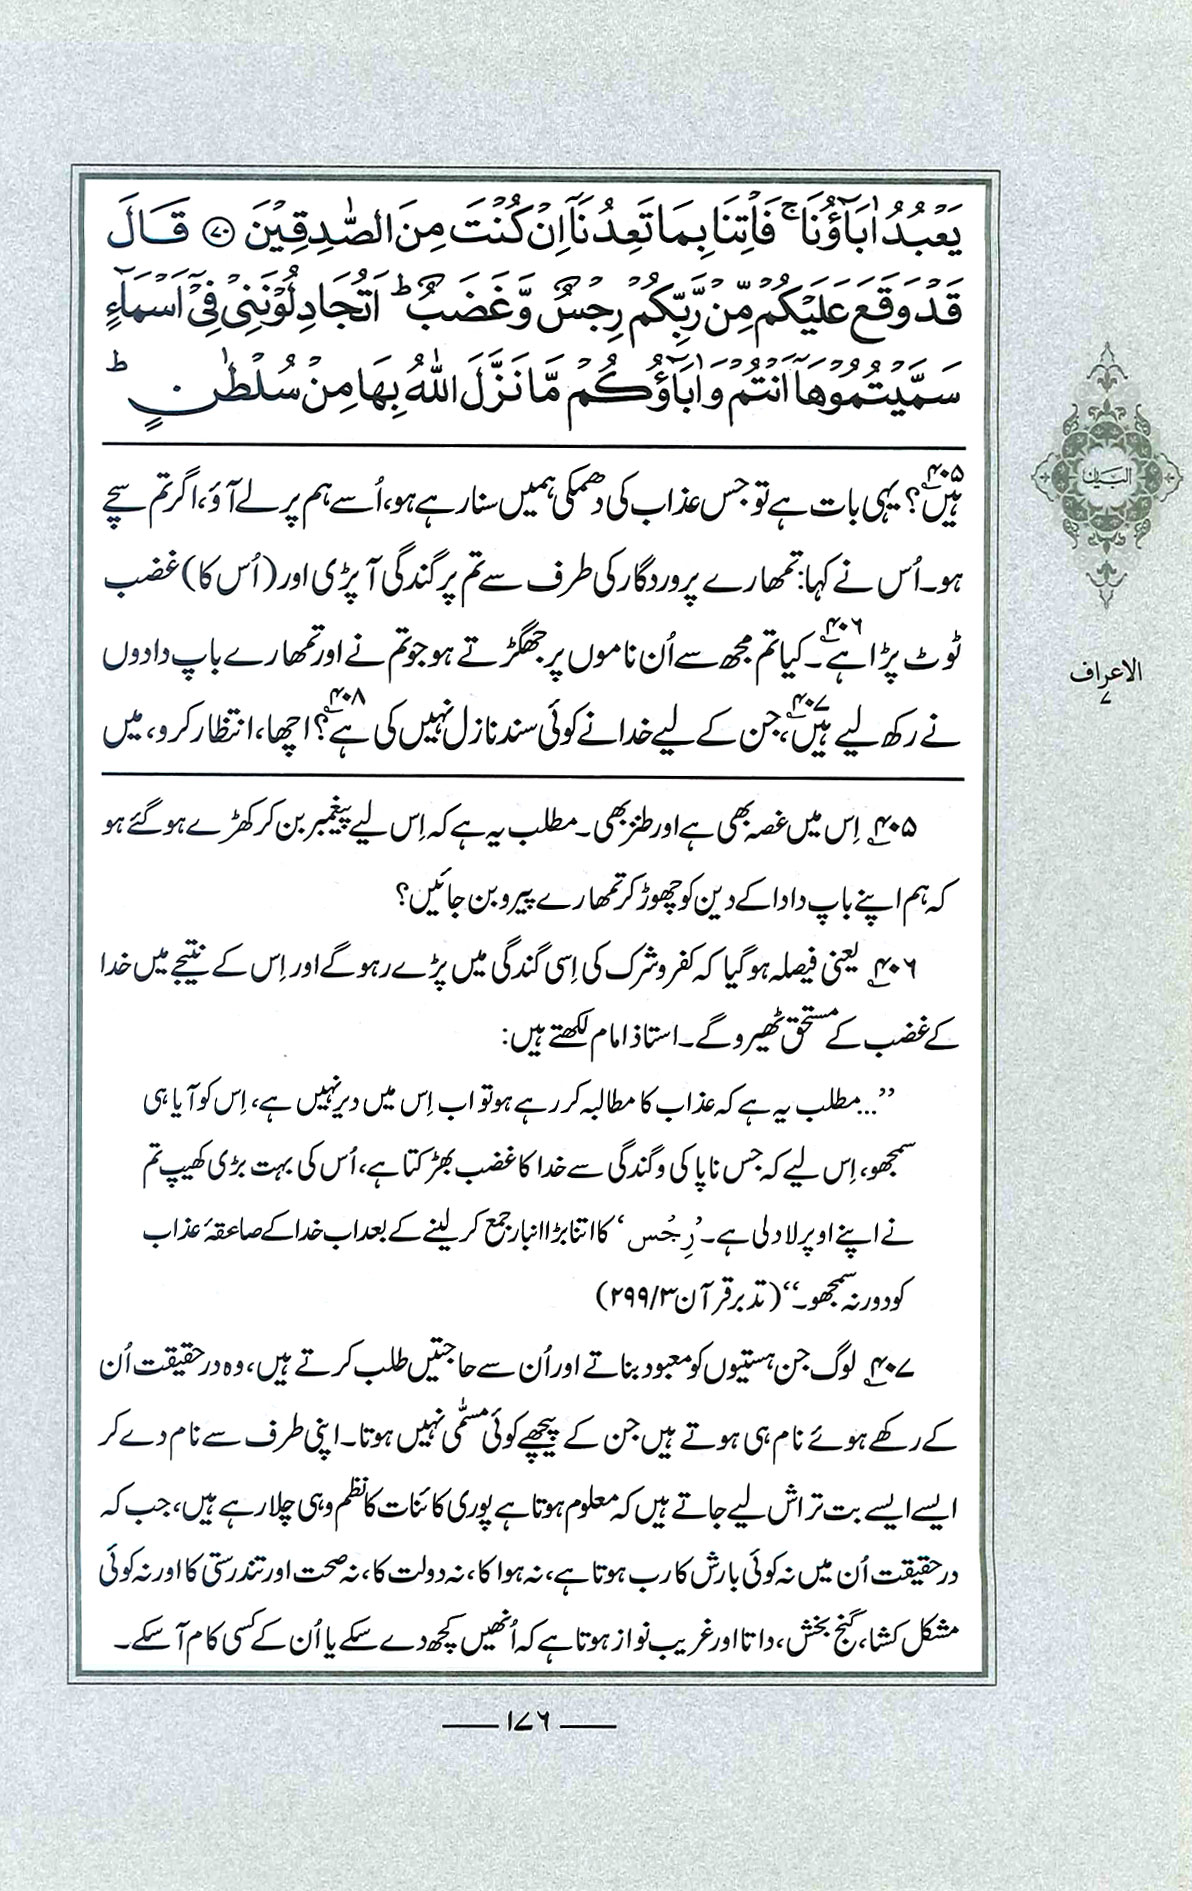 يَعْبُدُ اٰبَآؤُنَا ۚ فَاْتِنَا بِمَا تَعِدُنَآ اِنْ كُنْتَ مِنَ الصّٰدِقِيْنَ ﴿۷۰﴾ قَالَ
قَدْ وَقَعَ عَلَيْكُمْ مِّنْ رَّبِّكُمْ رِجْسٌ وَّغَضَبٌ ؕ اَتُجَادِلُوْنَنِيْ فِيْٓ اَسْمَآءٍ
سَمَّيْتُمُوْهَآ اَنْتُمْ وَاٰبَآؤُكُمْ مَّا نَزَّلَ اللّٰهُ بِهَا مِنْ سُلْطٰنٍ ؕ
ہیں۴۰۵؟ یہی بات ہے تو جس عذاب کی دھمکی ہمیں سنا رہے ہو، اُسے ہم پر لے آؤ، اگر تم سچے
ہو۔ اُس نے کہا: تمھارے پروردگار کی طرف سے تم پر گندگی آ پڑی اور (اُس کا) غضب
ٹوٹ پڑا ہے۴۰۶۔ کیا تم مجھ سے اُن ناموں پر جھگڑتے ہو جو تم نے اور تمھارے باپ دادوں
نے رکھ لیے ہیں۴۰۷، جن کے لیے خدا نے کوئی سند نازل نہیں کی ہے۴۰۸؟ اچھا، انتظار کرو، میں
۴۰۵ اِس میں غصہ بھی ہے اور طنز بھی۔ مطلب یہ ہے کہ اِس لیے پیغمبر بن کر کھڑے ہو گئے ہو
کہ ہم اپنے باپ دادا کے دین کو چھوڑ کر تمھارے پیرو بن جائیں؟
۴۰۶ یعنی فیصلہ ہو گیا کہ کفر و شرک کی اِسی گندگی میں پڑے رہو گے اور اِس کے نتیجے میں خدا
کے غضب کے مستحق ٹھیرو گے۔ استاذ امام لکھتے ہیں:
’’...مطلب یہ ہے کہ عذاب کا مطالبہ کر رہے ہو تو اب اِس میں دیر نہیں ہے، اِس کو آیا ہی
سمجھو، اِس لیے کہ جس ناپاکی و گندگی سے خدا کا غضب بھڑکتا ہے، اُس کی بہت بڑی کھیپ تم
نے اپنے اوپر لاد لی ہے۔ ’رِجْس‘ کا اتنا بڑا انبار جمع کر لینے کے بعد اب خدا کے صاعقۂ عذاب
کو دور نہ سمجھو۔‘‘ (تدبرقرآن ۳/۲۹۹)
۴۰۷ لوگ جن ہستیوں کو معبود بناتے اور اُن سے حاجتیں طلب کرتے ہیں، وہ درحقیقت اُن
کے رکھے ہوئے نام ہی ہوتے ہیں جن کے پیچھے کوئی مسمّٰی نہیں ہوتا۔ اپنی طرف سے نام دے کر
ایسے ایسے بت تراش لیے جاتے ہیں کہ معلوم ہوتا ہے پوری کائنات کا نظم وہی چلا رہے ہیں، جب کہ
درحقیقت اُن میں نہ کوئی بارش کا رب ہوتا ہے، نہ ہوا کا، نہ دولت کا، نہ صحت اور تندرستی کا اور نہ کوئی
مشکل کشا، گنج بخش، داتا اور غریب نواز ہوتا ہے کہ اُنھیں کچھ دے سکے یا اُن کے کسی کام آ سکے۔
البیان
الاعراف
۷
۱۷۶